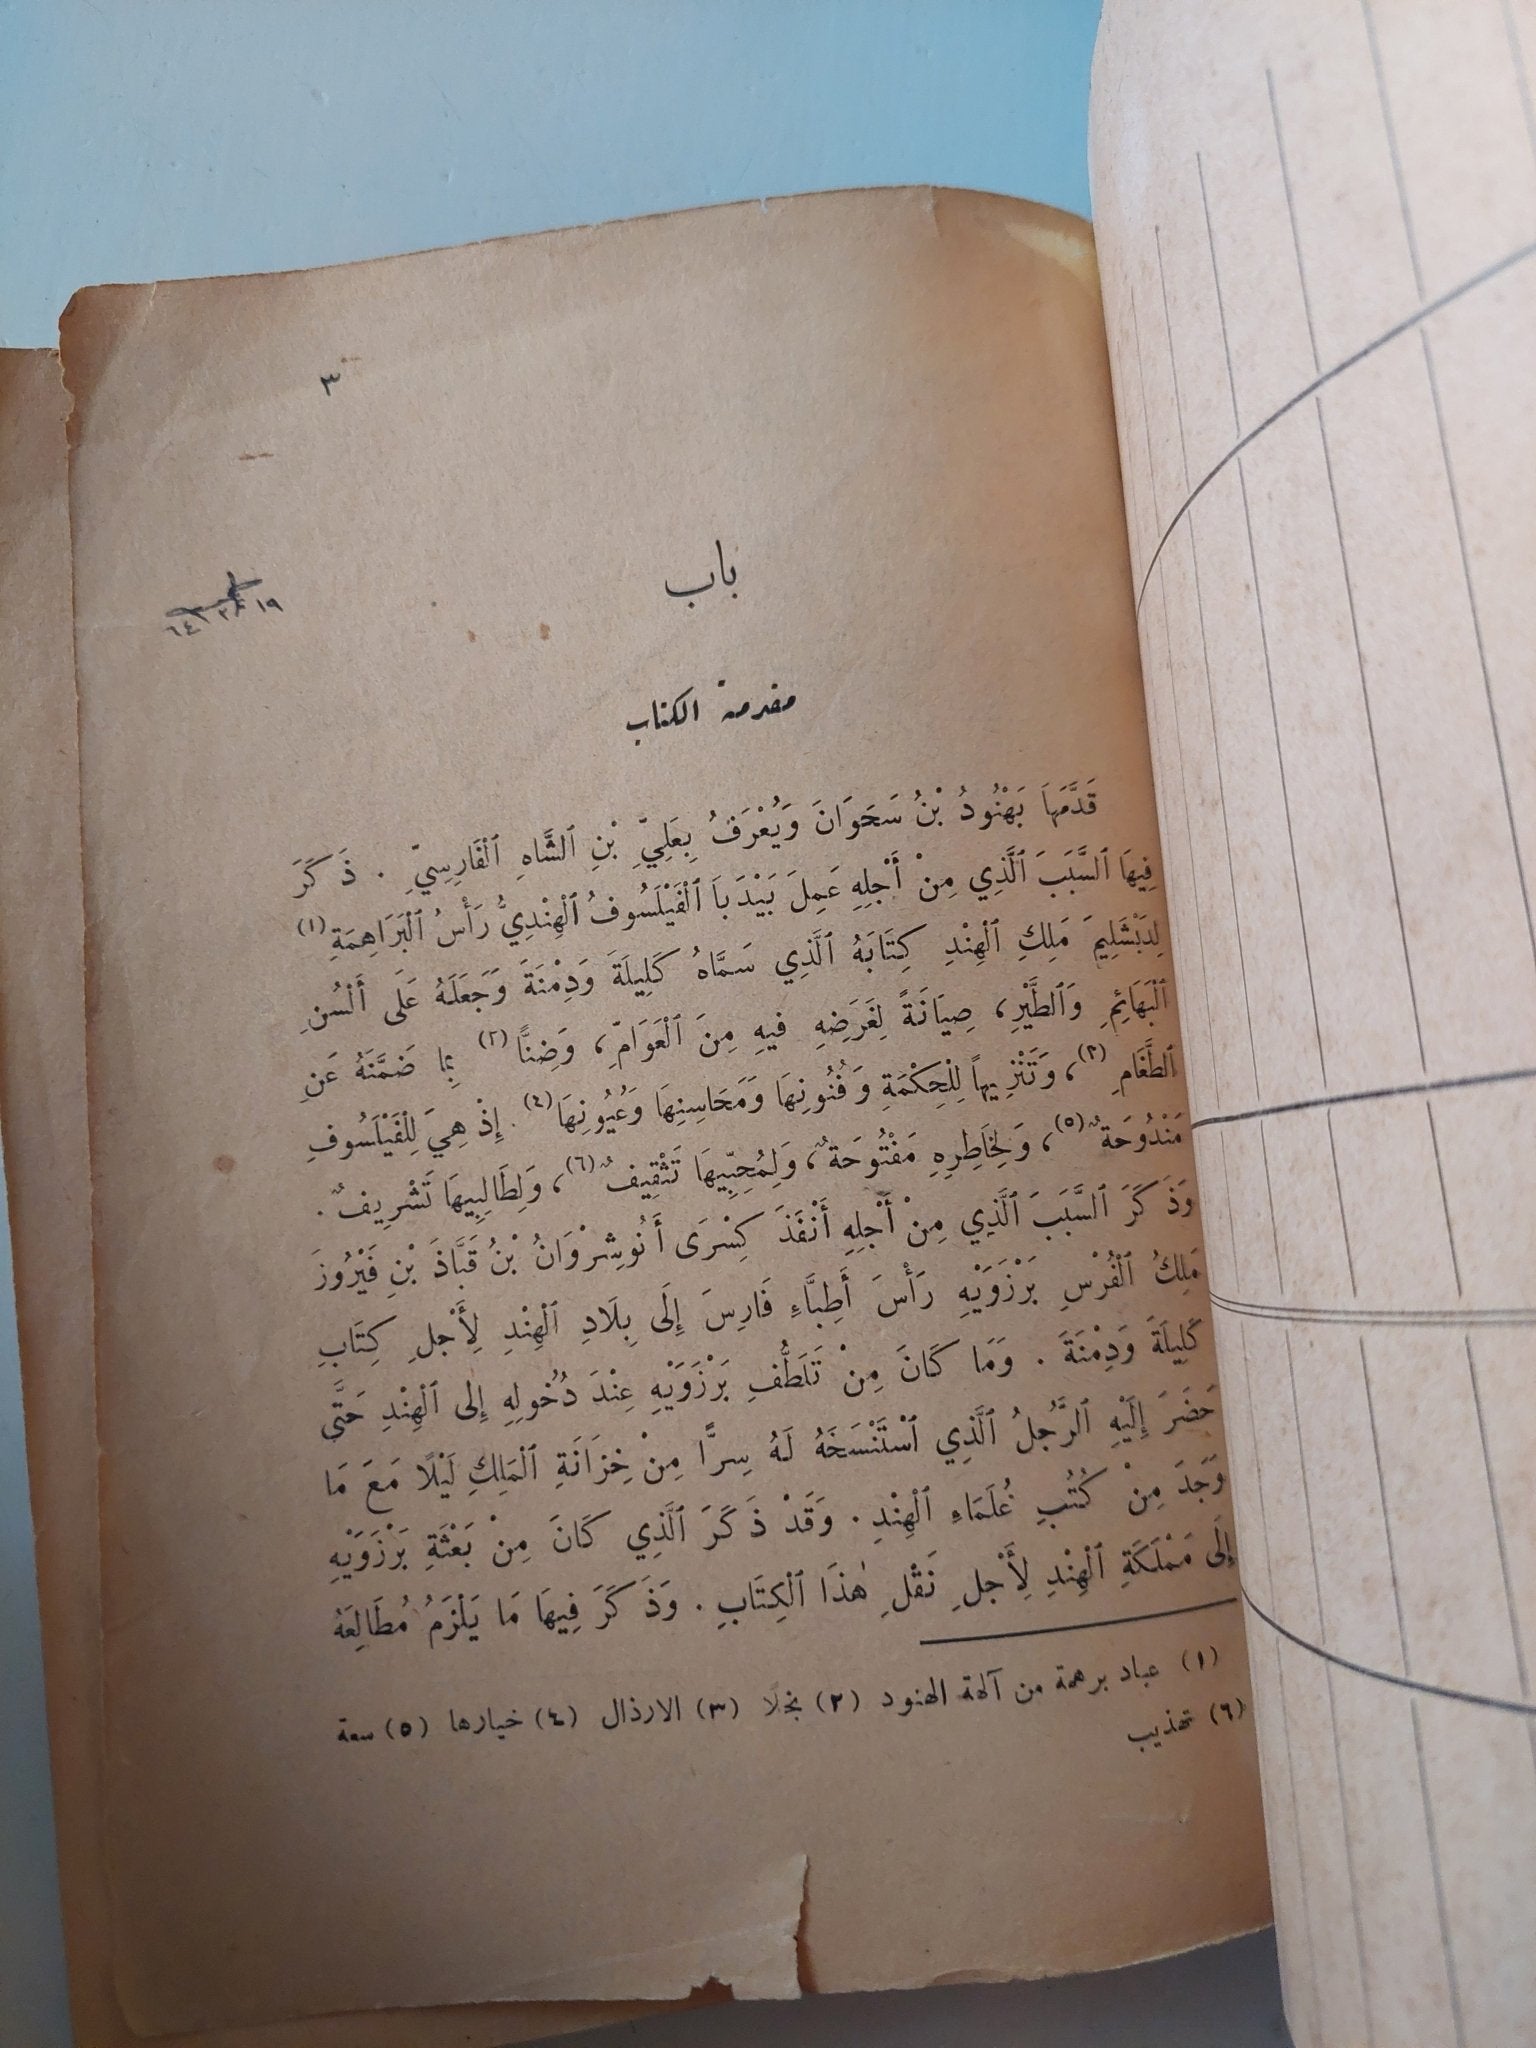 ٣
باب
١٩
٦٤
مقدمة الكتاب
قَدَّمَهَا بَهْنُودُ بْنُ سَحَوَانَ وَيُعْرَفُ بِعَلِيِّ بْنِ ٱلشَّاهِ ٱلْفَارِسِيِّ . ذَكَرَ
فِيهَا ٱلسَّبَبَ ٱلَّذِي مِنْ أَجْلِهِ عَمِلَ بَيْدَبَا ٱلْفَيْلَسُوفُ ٱلْهِنْدِيُّ رَأْسُ ٱلْبَرَاهِمَةِ (١)
لِدَبْشَلِيمَ مَلِكِ ٱلْهِنْدِ كِتَابَهُ ٱلَّذِي سَمَّاهُ كَلِيلَةَ وَدِمْنَةَ وَجَعَلَهُ عَلَى أَلْسُنِ
ٱلْبَهَائِمِ وَٱلطَّيْرِ، صِيَانَةً لِغَرَضِهِ فِيهِ مِنَ ٱلْعَوَامِّ، وَضِنًّا (٢) بِمَا ضَمَّنَهُ عَنِ
ٱلطَّغَامِ (٣)، وَتَنْزِيهاً لِلْحِكْمَةِ وَفُنُونِهَا وَمَحَاسِنِهَا وَعُيُونِهَا (٤). إِذْ هِيَ لِلْفَيْلَسُوفِ
مَنْدُوحَةٌ (٥)، وَلِخَاطِرِهِ مَفْتُوحَةٌ، وَلِمُحِبِّيهَا تَثْقِيفٌ (٦)، وَلِطَالِبِيهَا تَشْرِيفٌ .
وَذَكَرَ ٱلسَّبَبَ ٱلَّذِي مِنْ أَجْلِهِ أَنْفَذَ كِسْرَى أَنُوشِرْوَانُ بْنُ قَبَّاذَ بْنِ فَيْرُوزَ
مَلِكُ ٱلْفُرْسِ بَرْزَوَيْهِ رَأْسَ أَطِبَّاءِ فَارِسَ إِلَى بِلَادِ ٱلْهِنْدِ لِأَجْلِ كِتَابِ
كَلِيلَةَ وَدِمْنَةَ . وَمَا كَانَ مِنْ تَلَطُّفِ بَرْزَوَيْهِ عِنْدَ دُخُولِهِ إِلى ٱلْهِنْدِ حَتَّى
حَضَرَ إِلَيْهِ ٱلرَّجُلُ ٱلَّذِي ٱسْتَنْسَخَهُ لَهُ سِرًّا مِنْ خِزَانَةِ ٱلْمَلِكِ لَيْلًا مَعَ مَا
وَجَدَ مِنْ كُتُبِ عُلَمَاءِ ٱلْهِنْدِ . وَقَدْ ذَكَرَ ٱلَّذِي كَانَ مِنْ بَعْثَةِ بَرْزَوَيْهِ
إِلَى مَمْلَكَةِ ٱلْهِنْدِ لِأَجْلِ نَقْلِ هٰذَا ٱلْكِتَابِ . وَذَكَرَ فِيهَا مَا يَلْزَمُ مُطَالِعَهُ
(١) عباد برهمة من آلهة الهنود (٢) بخلًا (٣) الارذال (٤) خيارها (٥) سعة
(٦) تهذيب